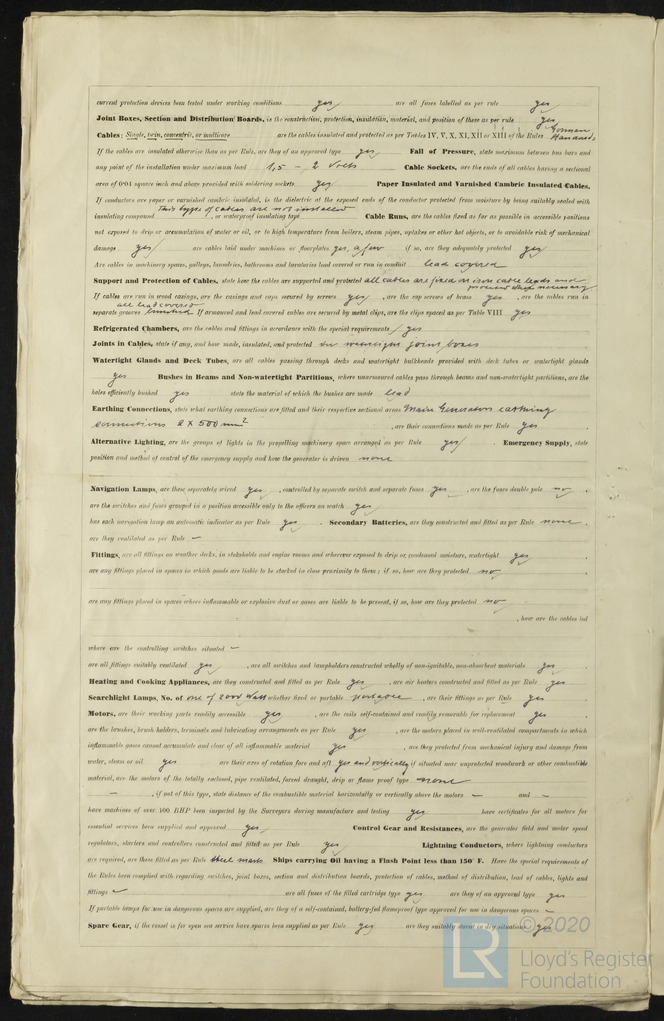 current protection devices been tested under working conditions yes are all fuses labelled as per rule yes
Joint Boxes, Section and Distribution Boards, is the construction, protection, insulation, material, and position of these as per rule yes
Cables: Single, twin, concentric, or multicore are the cables insulated and protected as per Tables IV, V, X, XI, XII or XIII of the Rules German Standards
If the cables are insulated otherwise than as per Rule, are they of an approved type yes Fall of Pressure, state maximum between bus bars and
any point of the installation under maximum load 1,5 – 2 Volts Cable Sockets, are the ends of all cables having a sectional
area of 0·04 square inch and above provided with soldering sockets yes Paper Insulated and Varnished Cambric Insulated Cables.
If conductors are paper or varnished cambric insulated, is the dielectric at the exposed ends of the conductor protected from moisture by being suitably sealed with
This types of cables are not installed
insulating compound , or waterproof insulating tape Cable Runs, are the cables fixed as far as possible in accessible positions
not exposed to drip or accumulation of water or oil, or to high temperature from boilers, steam pipes, uptakes or other hot objects, or to avoidable risk of mechanical
damage yes are cables laid under machines or floorplates yes, a few if so, are they adequately protected yes
Are cables in machinery spaces, galleys, laundries, bathrooms and lavatories lead covered or run in conduit lead covered
Support and Protection of Cables, state how the cables are supported and protected all cables are fixed on iron cable leads and
protected where necessary
If cables are run in wood casings, are the casings and caps secured by screws yes , are the cap screws of brass yes , are the cables run in
all lead covered
separate grooves If armoured and lead covered cables are secured by metal clips, are the clips spaced as per Table VIII yes
Refrigerated Chambers, are the cables and fittings in accordance with the special requirements yes
Joints in Cables, state if any, and how made, insulated, and protected in watertight joint boxes
Watertight Glands and Deck Tubes, are all cables passing through decks and watertight bulkheads provided with deck tubes or watertight glands
yes Bushes in Beams and Non-watertight Partitions, where unarmoured cables pass through beams and non-watertight partitions, are the
holes efficiently bushed yes state the material of which the bushes are made lead
Earthing Connections, state what earthing connections are fitted and their respective sectional areas Main Generators earthing
connections 2 x 500 mm² , are their connections made as per Rule yes
Alternative Lighting, are the groups of lights in the propelling machinery space arranged as per Rule yes Emergency Supply, state
position and method of control of the emergency supply and how the generator is driven none
Navigation Lamps, are these separately wired yes , controlled by separate switch and separate fuses yes , are the fuses double pole no
are the switches and fuses grouped in a position accessible only to the officers on watch yes
has each navigation lamp an automatic indicator as per Rule yes Secondary Batteries, are they constructed and fitted as per Rule none
are they ventilated as per Rule –
Fittings, are all fittings on weather decks, in stokeholds and engine rooms and wherever exposed to drip or condensed moisture, watertight yes
are any fittings placed in spaces in which goods are liable to be stacked in close proximity to them; if so, how are they protected no
are any fittings placed in spaces where inflammable or explosive dust or gases are liable to be present, if so, how are they protected no
, how are the cables led
where are the controlling switches situated –
are all fittings suitably ventilated yes , are all switches and lampholders constructed wholly of non-ignitable, non-absorbent materials yes
Heating and Cooking Appliances, are they constructed and fitted as per Rule yes , are air heaters constructed and fitted as per Rule yes
Searchlight Lamps, No. of one of 2000 Watt whether fixed or portable portable , are their fittings as per Rule yes
Motors, are their working parts readily accessible yes , are the coils self-contained and readily removable for replacement yes
are the brushes, brush holders, terminals and lubricating arrangements as per Rule yes , are the motors placed in well-ventilated compartments in which
inflammable gases cannot accumulate and clear of all inflammable material yes , are they protected from mechanical injury and damage from
water, steam or oil yes are their axes of rotation fore and aft yes and vertically if situated near unprotected woodwork or other combustible
material, are the motors of the totally enclosed, pipe ventilated, forced draught, drip or flame proof type none
– , if not of this type, state distance of the combustible material horizontally or vertically above the motors – and –
have machines of over 100 BHP been inspected by the Surveyors during manufacture and testing yes have certificates for all motors for
essential services been supplied and approved yes Control Gear and Resistances, are the generator field and motor speed
regulators, starters and controllers constructed and fitted as per Rule yes Lightning Conductors, where lightning conductors
are required, are these fitted as per Rule steel masts Ships carrying Oil having a Flash Point less than 150° F. Have the special requirements of
the Rules been complied with regarding switches, joint boxes, section and distribution boards, protection of cables, method of distribution, lead of cables, lights and
fittings – are all fuses of the filled cartridge type yes are they of an approved type yes
If portable lamps for use in dangerous spaces are supplied, are they of a self-contained, battery-fed flameproof type approved for use in dangerous spaces –
Spare Gear, if the vessel is for open sea service have spares been supplied as per Rule yes are they suitably stored in dry situations yes
© 2020
LR
Lloyd's Register
Foundation